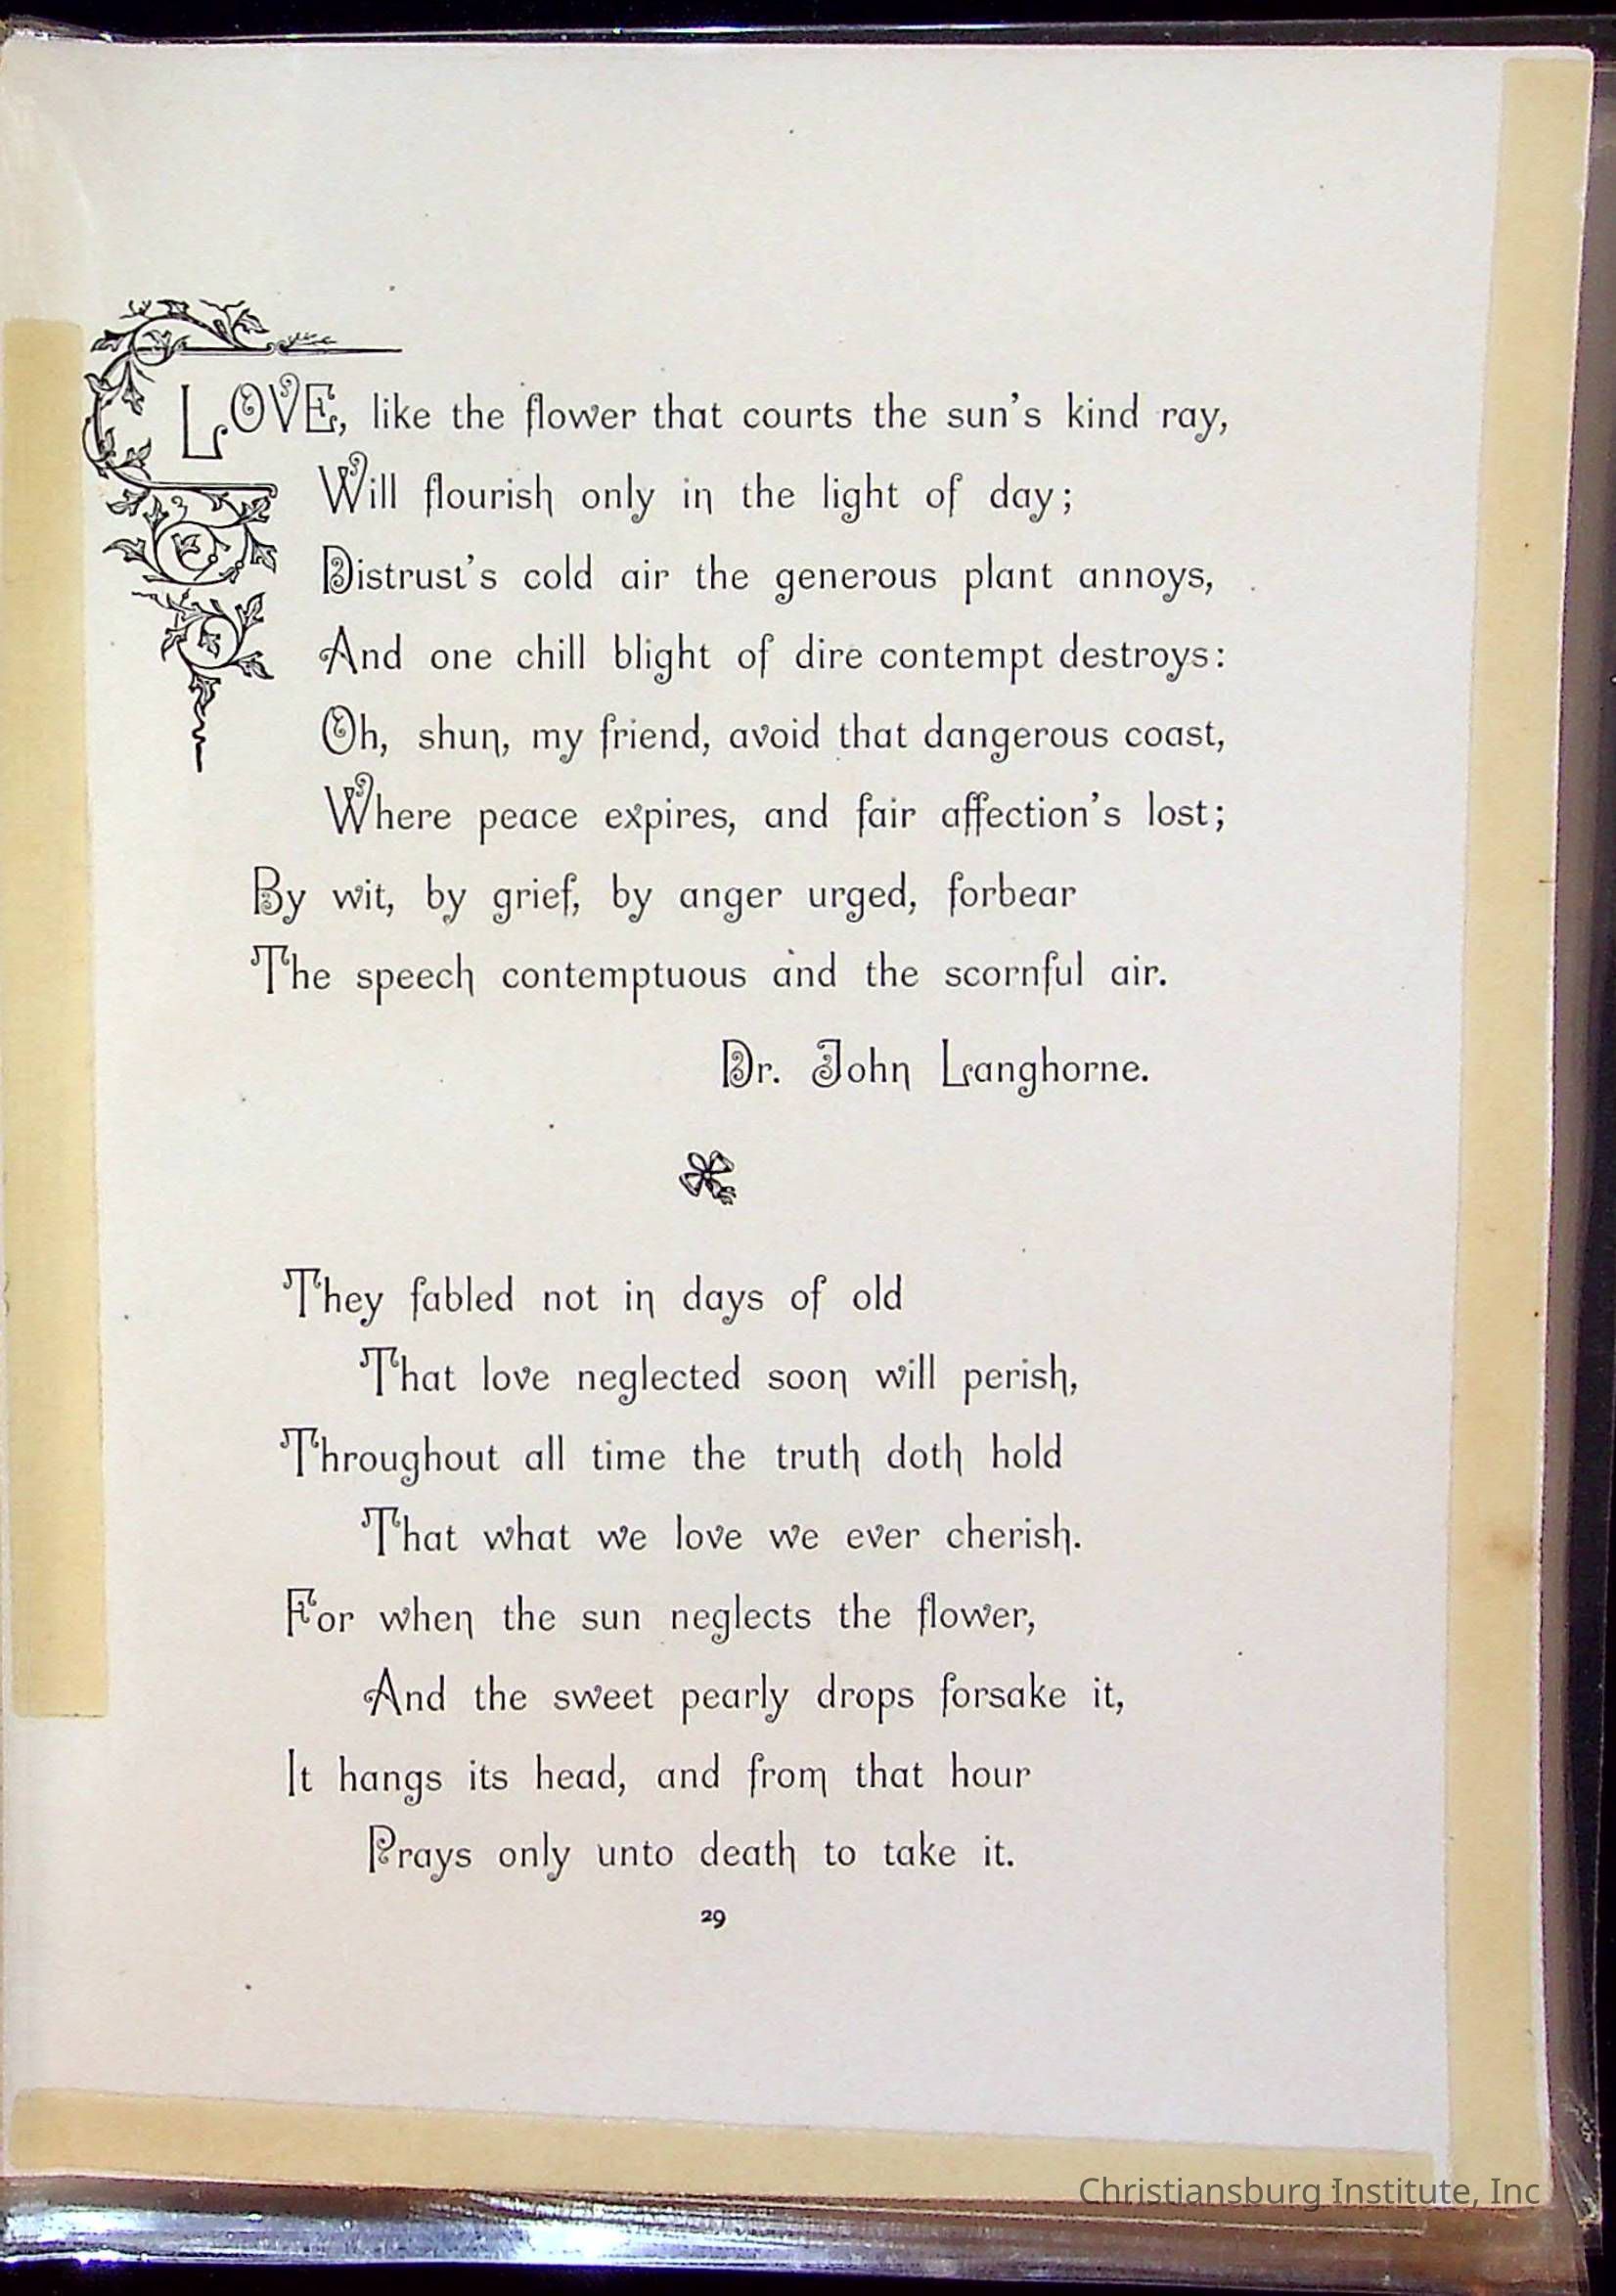 LOVE, like the flower that courts the sun's kind ray,
Will flourish only in the light of day;
Distrust's cold air the generous plant annoys,
And one chill blight of dire contempt destroys:
Oh, shun, my friend, avoid that dangerous coast,
Where peace expires, and fair affection's lost;
By wit, by grief, by anger urged, forbear
The speech contemptuous and the scornful air.
Dr. John Langhorne.
They fabled not in days of old
That love neglected soon will perish,
Throughout all time the truth doth hold
That what we love we ever cherish.
For when the sun neglects the flower,
And the sweet pearly drops forsake it,
It hangs its head, and from that hour
Prays only unto death to take it.
29
Christiansburg Institute, Inc